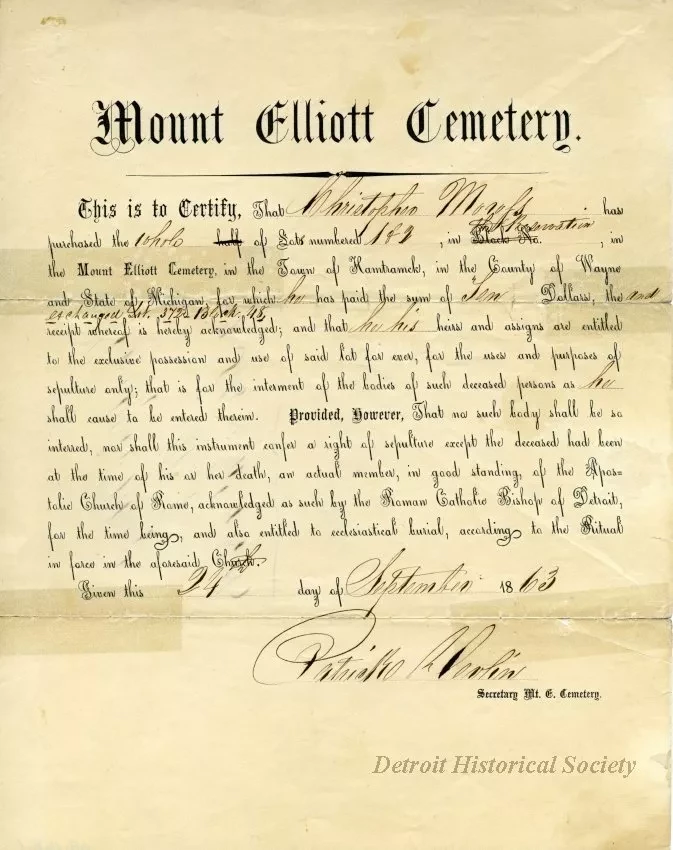 Mount Elliott Cemetery.
This is to Certify, That Christopher Moross has
1st Reservation
purchased the whole half of Lots numbered 182, in Block No. , in
the Mount Elliott Cemetery, in the Town of Hamtramck, in the County of Wayne
and State of Michigan, for which he has paid the sum of Ten Dollars, the and
exchanged Lot. 372. Block. 48.
receipt whereof is hereby acknowledged; and that he his heirs and assigns are entitled
to the exclusive possession and use of said Lot for ever, for the uses and purposes of
sepulture only; that is for the interment of the bodies of such deceased persons as he
shall cause to be entered therein. Provided, However, That no such body shall be so
interred, nor shall this instrument confer a right of sepulture except the deceased had been
at the time of his or her death, an actual member, in good standing, of the Apos-
tolic Church of Rome, acknowledged as such by the Roman Catholic Bishop of Detroit,
for the time being, and also entitled to ecclesiastical burial, according to the Ritual
in force in the aforesaid Church.
Given this 24th day of September 1863
Patrick Devlin
Secretary Mt. E. Cemetery.
Detroit Historical Society